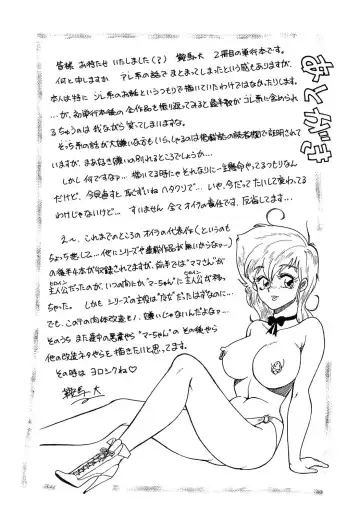 あとがき
皆様 お待たせ いたしました(?) 鞍馬大 2冊目の単行本です。
何と申しますか アレ系の話で まとまってしまったという感もありますが、
本人は特に ソレ系のお話というつもりで描いていたわけではなかったりします。
…が、初単行本後の全作品を振り返ってみると 過半数が コレ系に含められ
るちゅうのは 我ながら笑ってしまいますな。
そっち系の話が 大嫌いな方も いらっしゃるのは 掲載誌の読者欄で証明されて
いますが、まあ好き嫌いの別れるところでしょうか…
しかし何ですなァ… 描いてる時にゃ それなりに一生懸命やってるつもりなん
だけど、今見直すと 恥ずいね ヘタクソで… いや、今だって たいして変わってる
わけじゃないけど… すいません 全て オイラの責任です、反省してます…
え〜、これまでのところの オイラの代表作(というのも
ちょっと悲しいて…他にシリーズや連載作品が無いからなァ…)
の後半4本が収録されてますが、前半では"ママさん"が
主人公だったのが いつの間にか "マーちゃん"に 主人公が移っ
ヒロイン
ヒロイン
ちゃった。しかもシリーズの主役は
でも、この手の肉体改造モノ、嫌いじゃないんだよなァ…
そのうち また
の悪業やら "マーちゃん"の その後やら
他の改造ネタやらを描きたいと思ってます。
その時は ヨロシクね♡
鞍馬大